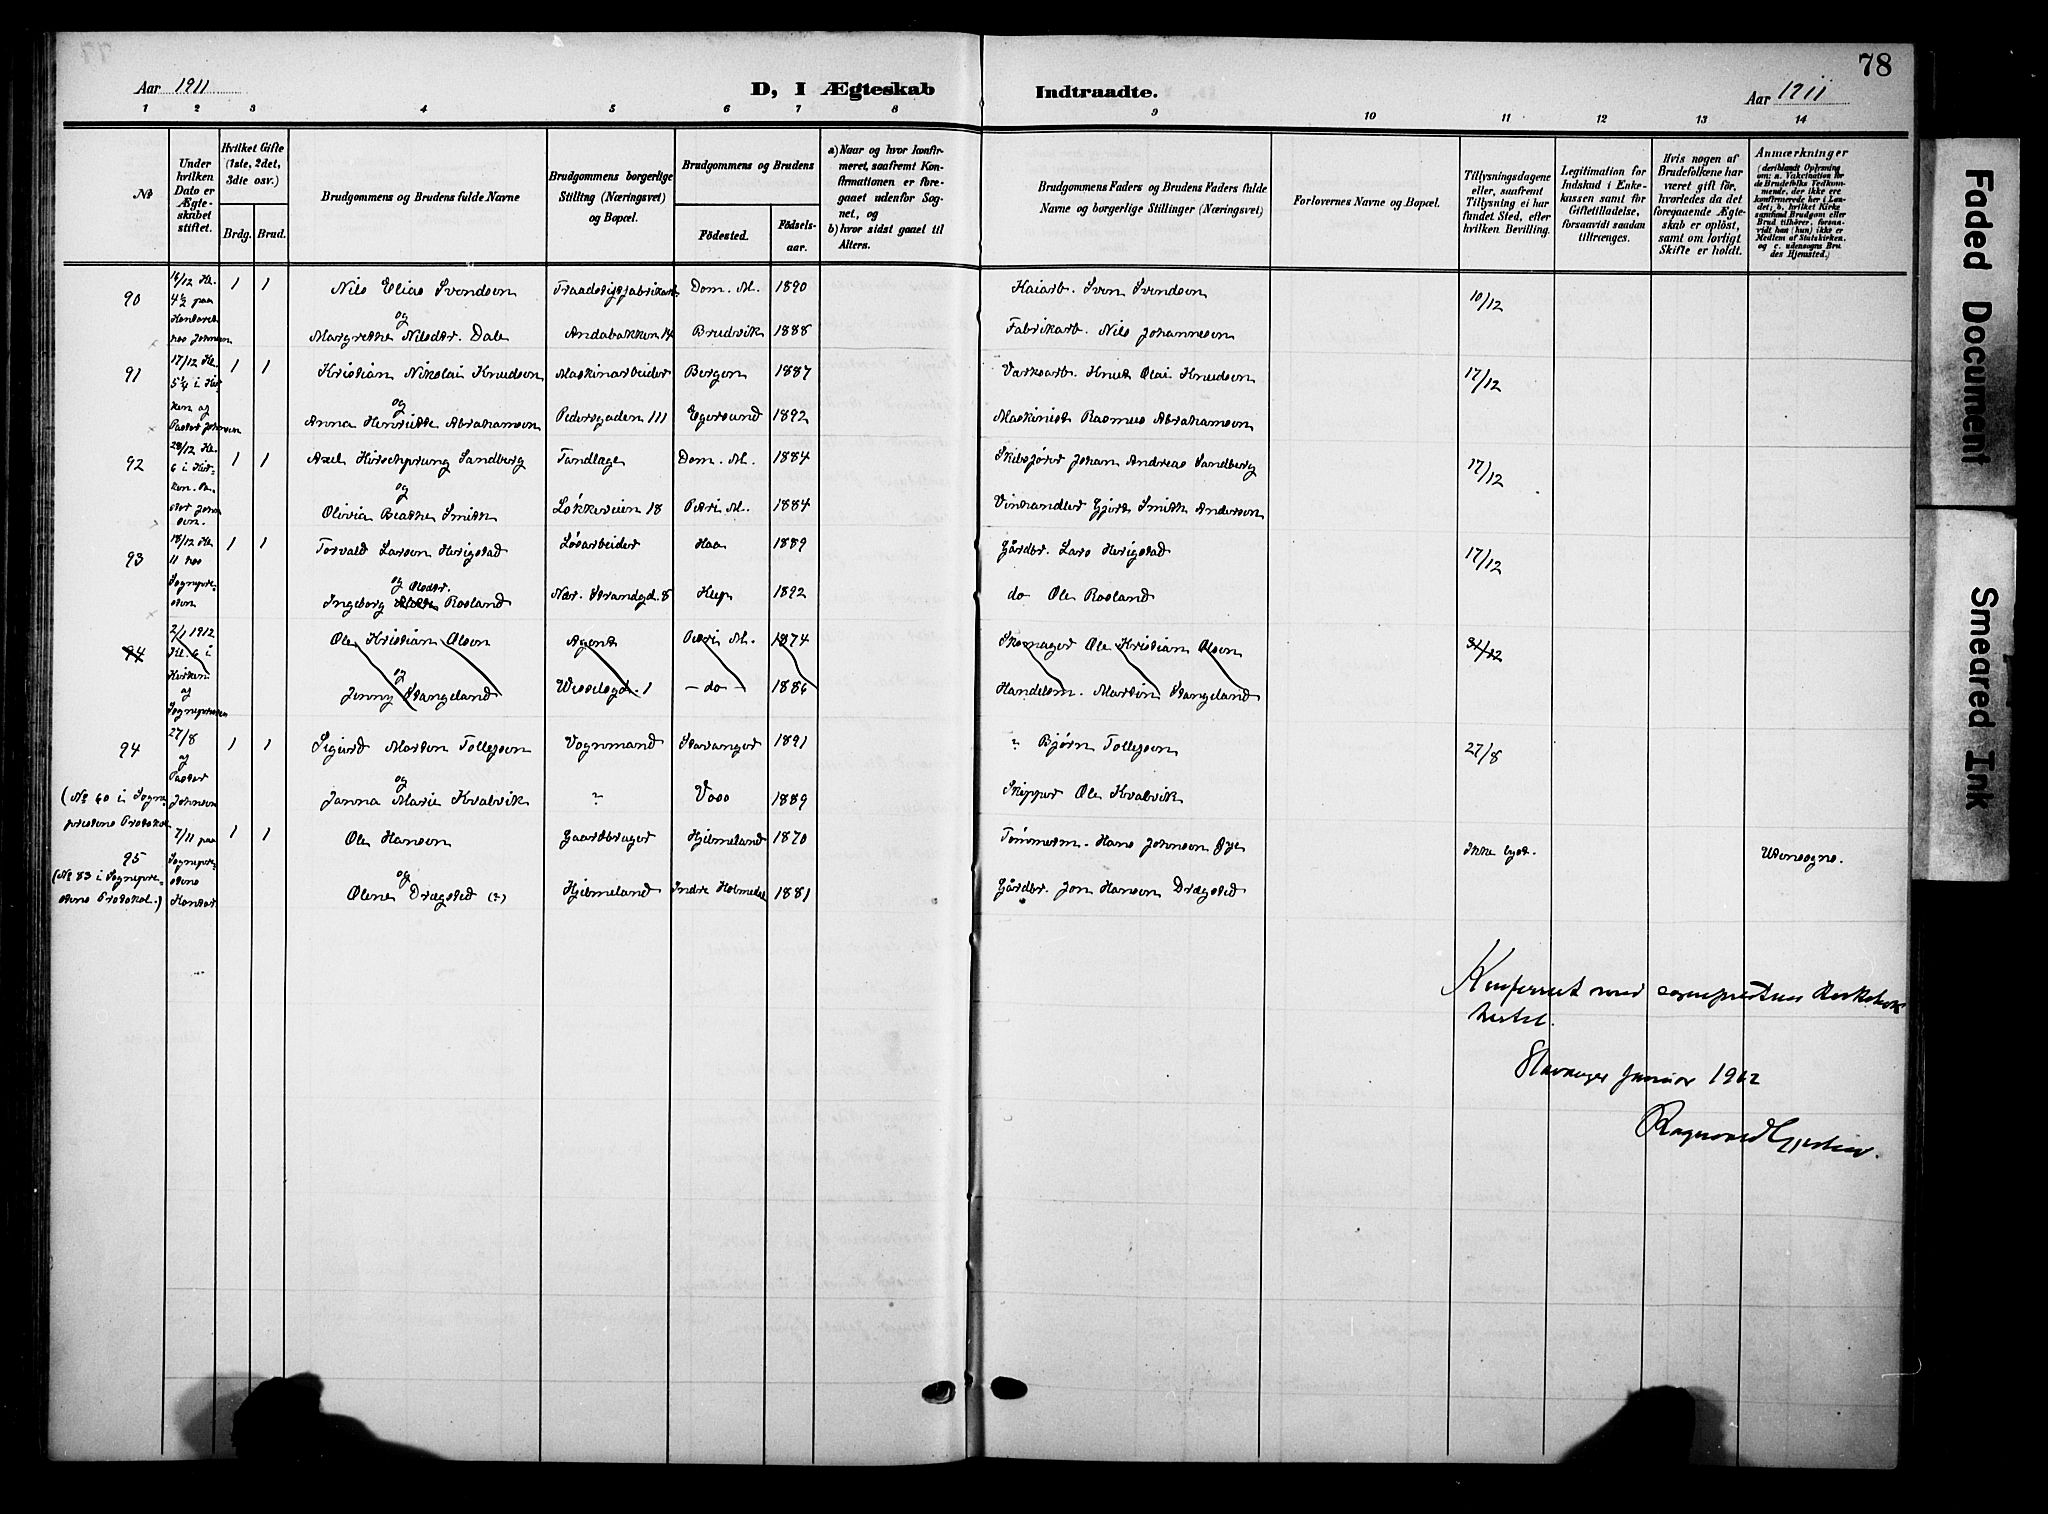 78
Aar 1911
D, I Ægteskab Indtraadte.
Aar 1911
1 2 3 4 5 6 7 8 9 10 11 12 13 14
No
Under hvilken Dato er Ægteskabet stiftet.
Hvilket Gifte (1ste, 2det, 3die osv.)
Brdg. Brud.
Brudgommens og Brudens fulde Navne
Brudgommens borgerlige Stilling (Næringsvei) og Bopæl.
Brudgommens og Brudens
Fødested.
Fødselsaar.
a) Naar og hvor konfirmeret, saafremt Konfirmationen er foregaaet udenfor Sognet, og
b) hvor sidst gaaet til Alters.
Brudgommens Faders og Brudens Faders fulde Navne og borgerlige Stillinger (Næringsvei)
Forlovernes Navne og Bopæl.
Tillysningsdagene eller, saafremt Tillysning ei har fundet Sted, efter hvilken Bevilling.
Legitimation for Indskud i Enkekassen samt for Giftetilladelse, forsaavidt saadan tiltrænges.
Hvis nogen af Brudefolkene har været gift før, hvorledes da det foregaaende Ægteskab er opløst, samt om lovligt Skifte er holdt.
Anmærkninger
(deriblandt Oplysning om: a. Vakcination for de Brudefolks Vedkommende, der ikke ere konfirmerede her i Landet; b. hvilket Kirkesamfund Brudgom eller Brud tilhører, forsaavidt han (hun) ikke er Medlem af Statskirken, og c. udensogns Brudes Hjemsted.)
90 16/12 Kl. 4½ paa Kontoret hos Johnsen 1 1 Nils Elias Svendsen Traadstiftfabrikarb. Dom. M. 1890 Kaiarb. Sven Svendsen 10/12
og
Margrethe Nilsdtr. Dale Andabakken 14 Brudvik 1888 Fabrikarb. Nils Johannesen
91 17/12 Kl. 5¼ i Kirken af Pastor Johnsen 1 1 Kristian Nikolai Knudsen Maskinarbeider Bergen 1887 Værksarb. Knut Olai Knudsen 17/12
og
Anna Henriette Abrahamsen Pedersgaden 111 Egersund 1892 Maskinist Rasmus Abrahamsen
92 28/12 Kl. 6 i Kirken. Pastor Johnsen. 1 1 Axel Hirschprung Sandberg Tandlæge Dom. M. 1884 Skibsfører Johan Andreas Sandberg 17/12
og
Olivia Beathe Smith Løkkeveien 18 Petri M. 1884 Vinhandler Gjert Smith Andersen
93 18/12 Kl 11 hos Sognepresten 1 1 Torvald Larsen Herigstad Løsarbeider Haa 1889 Gårdbr. Lars Herigstad 17/12
og Olsdtr.
Ingeborg Rosland Nær. Strandgd. 8 Klep 1892 do Ole Rosland
94 2/1 1912 Kl. 6 i Kirken af Sognepresten Ole Kristian Olsen Agent Petri M. 1874 Skomager Ole Kristian Olsen 31/12
og
Jenny Stangeland Wesselsgd. 1 - do - 1886 Handelsm. Martin Stangeland
94 27/8 af Pastor Johnsen 1 1 Sigurd Morten Tollefsen Vognmand Stavanger 1891 ? Bjørn Tollefsen 27/8
og
(No 60 i Sogneprestens Protokol Janna Marie Kvalvik ? Voss 1889 Skipper Ole Kvalvik
95 7/11 paa Sogneprestens Kontor. 1 1 Ole Hansen Gaardbruger Hjelmeland 1870 Tømmerm. Hans Johnsen Øye Ikke lyst. Utensogns.
og
(No 83 i Sogneprestens Protokol.) Olene Drægsted (?) Hjelmeland Indre Holmedal 1881 Gårdbr. Jon Hansen Drægsted
Konferert med sogneprestens kirkebok
Stavanger januar 1912
Faded Document
Smeared Ink